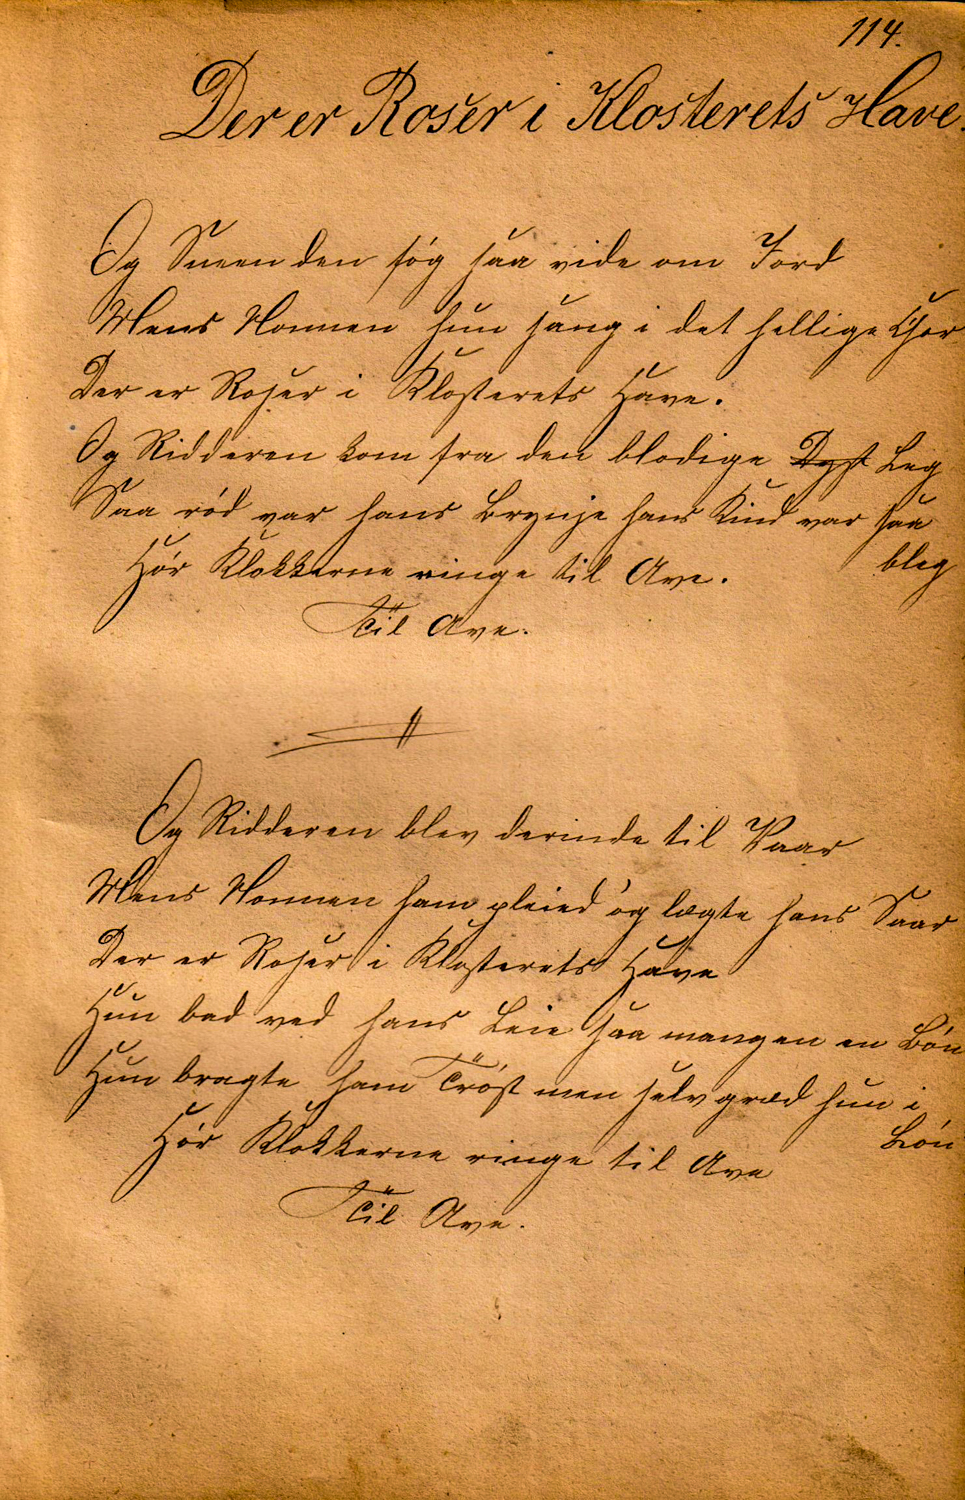 114.
Der er Roser i Klosterets Have.
Og Sneen den føg saa vide om Jord
Mens Nonnen hun sang i det hellige Chor
Der er Roser i Klosterets Have.
Og Ridderen kom fra den blodige Dyst Leg
Saa rød var hans Brynje hans Kind var saa
bleg
Hør Klokkerne ringe til Ave.
Til Ave.
Og Ridderen blev derinde til Vaar
Mens Nonnen ham pleied og lægte hans Saar
Der er Roser i Klosterets Have
Hun bad ved hans Leie saa mangen en Bøn
Hun bragte ham Trøst men selv græd hun i
Løn
Hør Klokkerne ringe til Ave
Til Ave.